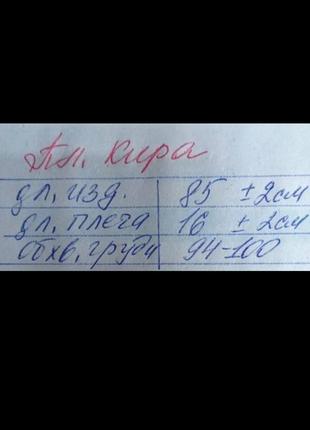 Пл. Кира
дл. изд. 85 ±2см
дл. плеча 16 ±2см
обхв. груди 94-100